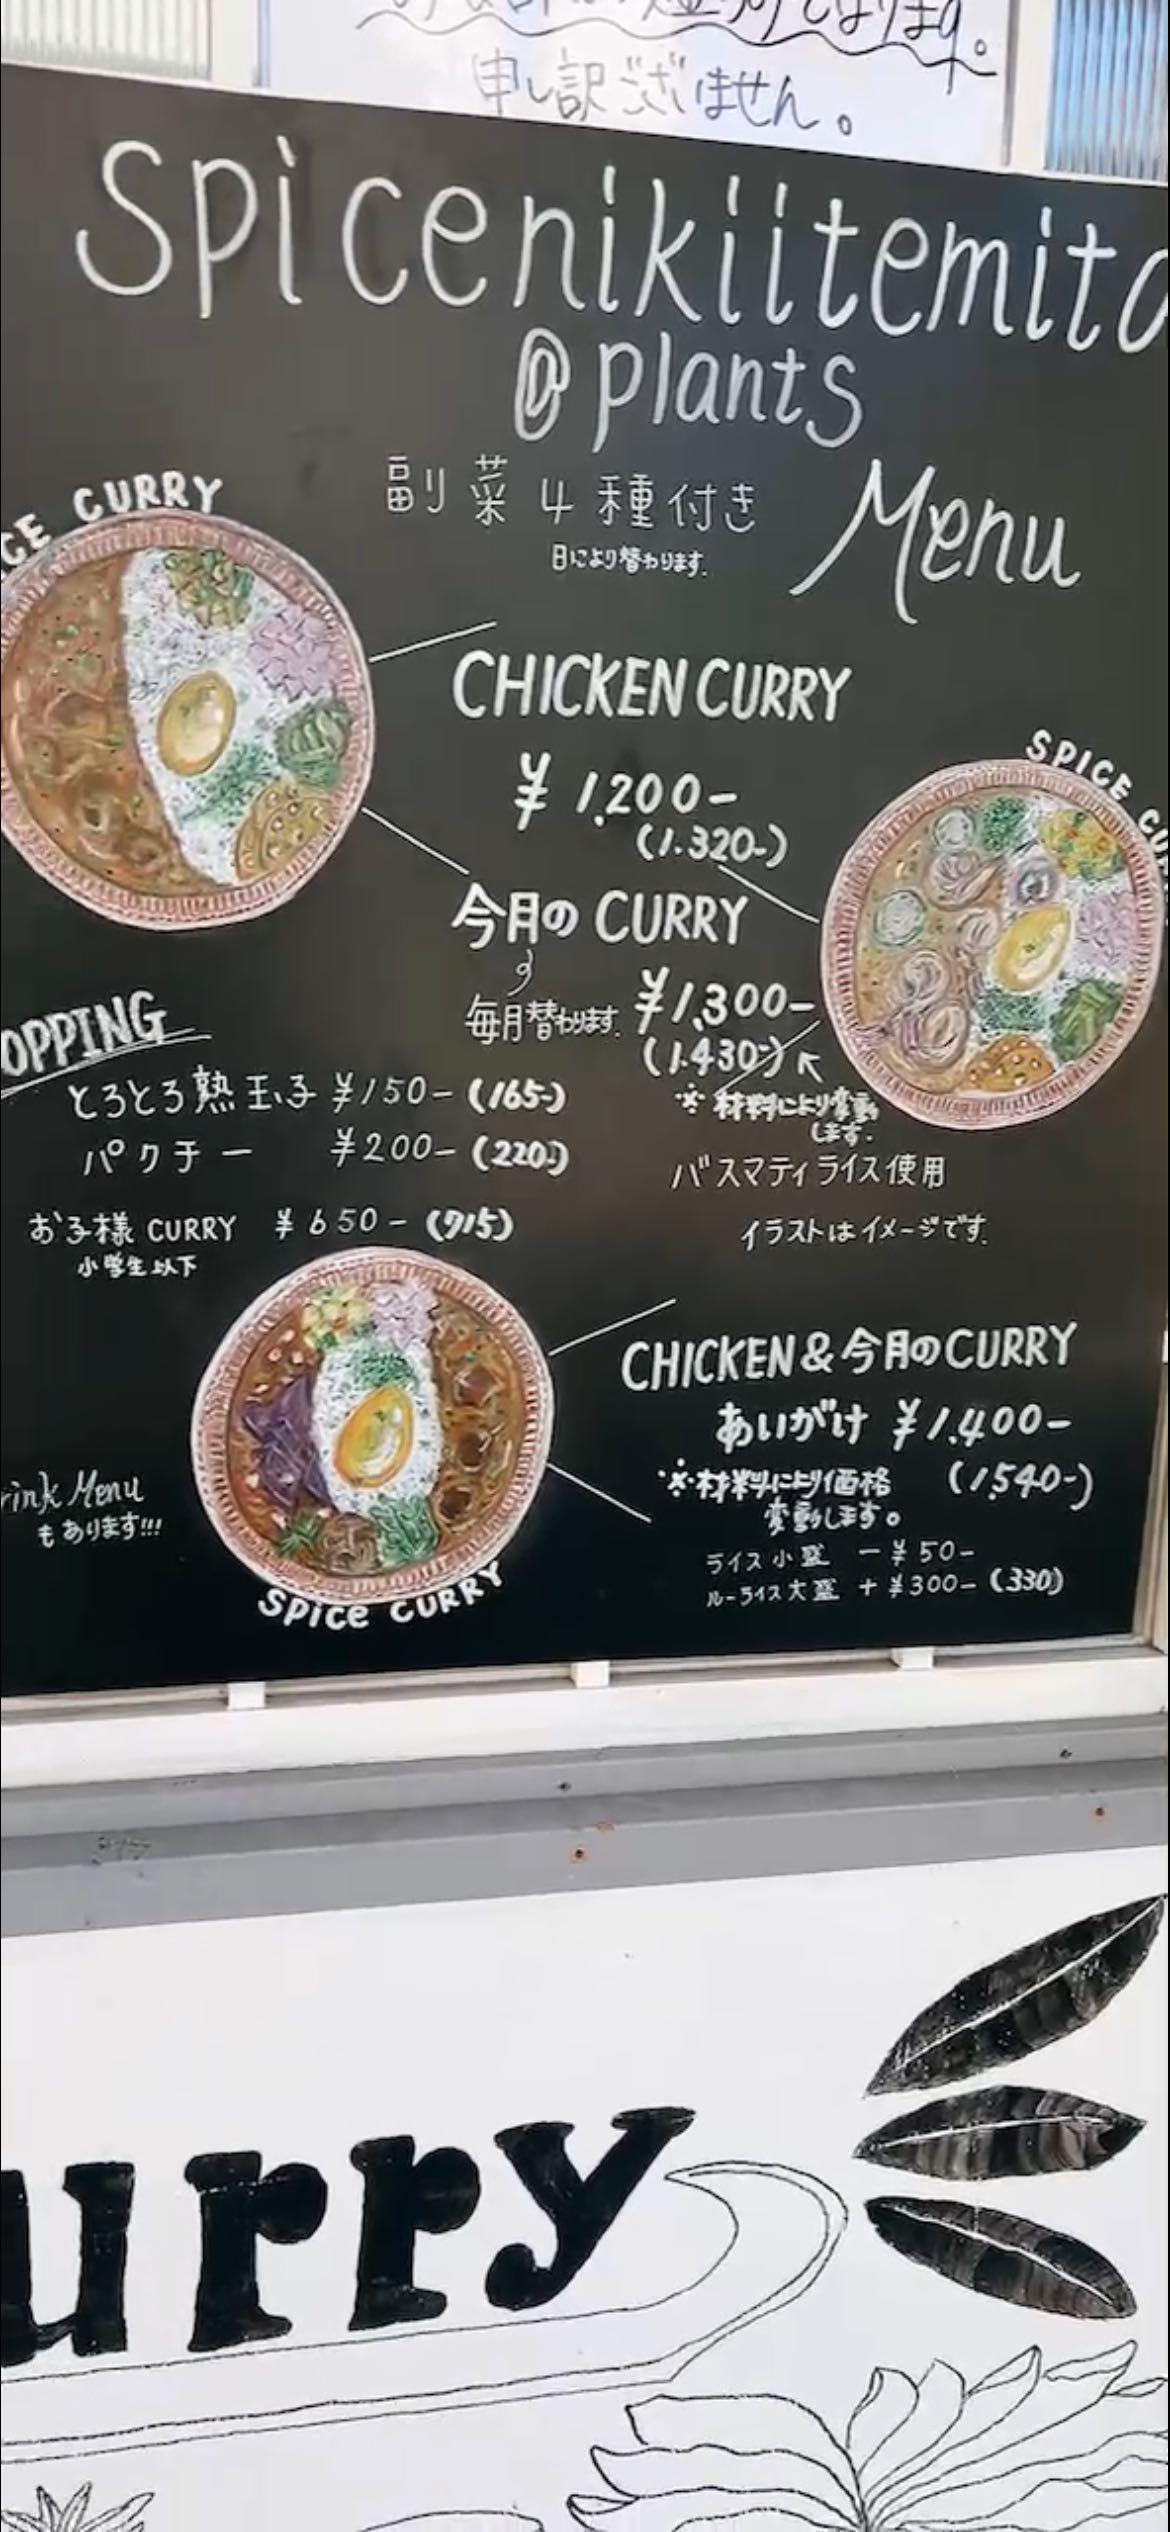 申し訳ございません。
Spicenikiitemita
@plants
副菜4種付き
日により替わります.
Menu
CURRY
CHICKEN CURRY
¥1,200-
(1.320-)
SPICE CU
今月の CURRY
毎月替わります.
¥1,300-
(1.430-)
※材料により変動
します.
OPPING
とろとろ熟玉子 ¥150- (165-)
パクチー ¥200- (220-)
お子様 CURRY ¥650- (715)
小学生以下
バスマティライス使用
イラストはイメージです.
CHICKEN & 今月のCURRY
あいがけ ¥1.400-
(1,540-)
※材料により価格
変動します。
ライス小盛 -¥50-
ルーライス大盛 +¥300- (330)
rink Menu
もあります!!!
Spice CURRY
urry